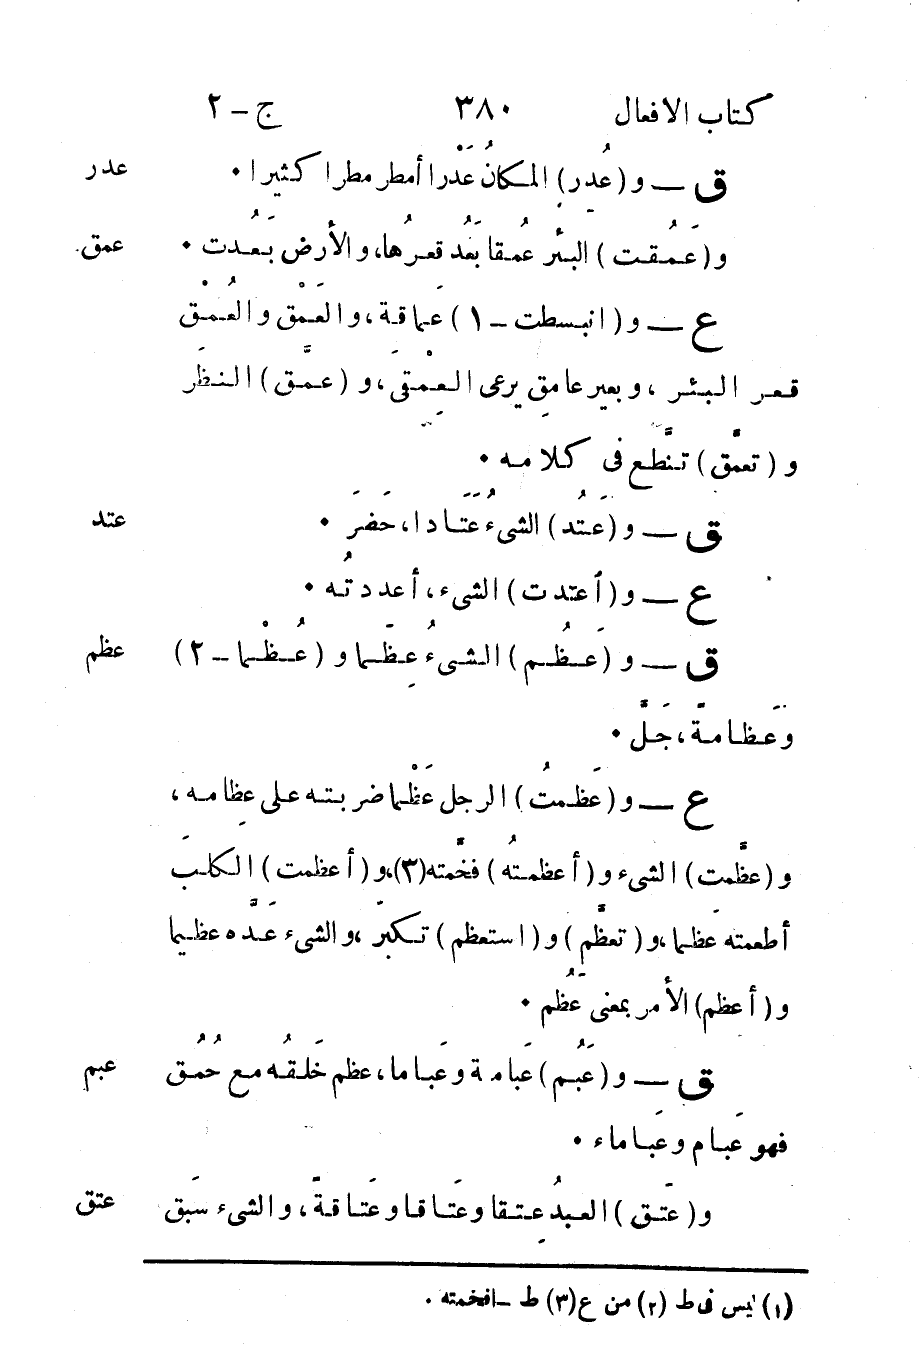 كتاب الافعال ٣٨٠ ج – ٢
ق – و (عُدِر) المكانُ عَدْرا أمطر مطرا كثيرا • عدر
و (عَمُقت) البئرُ عُمقا بَعُد قعرُها، والأرضُ بَعُدت • عمق
ع – و (انبسطت – ١) عَماقة، والعَمْق والعُمْق
قعر البئر، وبعير عامِق يرعى العِمْقَى، و (عمَّق) النظَر
و (تعمَّق) تنَطَّع فى كلامه •
ق – و (عَتُد) الشىءُ عَتَادا، حَضَرَ • عتد
ع – و (أعتدت) الشىء، أعددتُه •
ق – و (عَظُم) الشىءُ عِظَما و (عُظْما – ٢) عظم
وعَظامةً، جَلَّ •
ع – و (عَظَمتُ) الرجل عَظْما ضربته على عِظامه،
و (عظَّمت) الشىء و (أعظمتهُ) فخَّمته (٣)، و (أعظمت) الكلبَ
أطعمته عَظما، و (تعظَّم) و (استعظم) تكبَّر، والشىء عَدَّه عظيما
و (أعظم) الأمرُ بمعنى عَظُم •
ق – و (عَبُم) عَبامة وعَباما، عظم خَلقُه مع حُمُق عبم
فهو عَبام وعَباماء •
و (عَتَق) العبدُ عِتقا وعَتَاقا وعَتَاقةً، والشىء سَبَق عتق
(١) ليس فى ط (٢) من ع (٣) ط – افخمته .